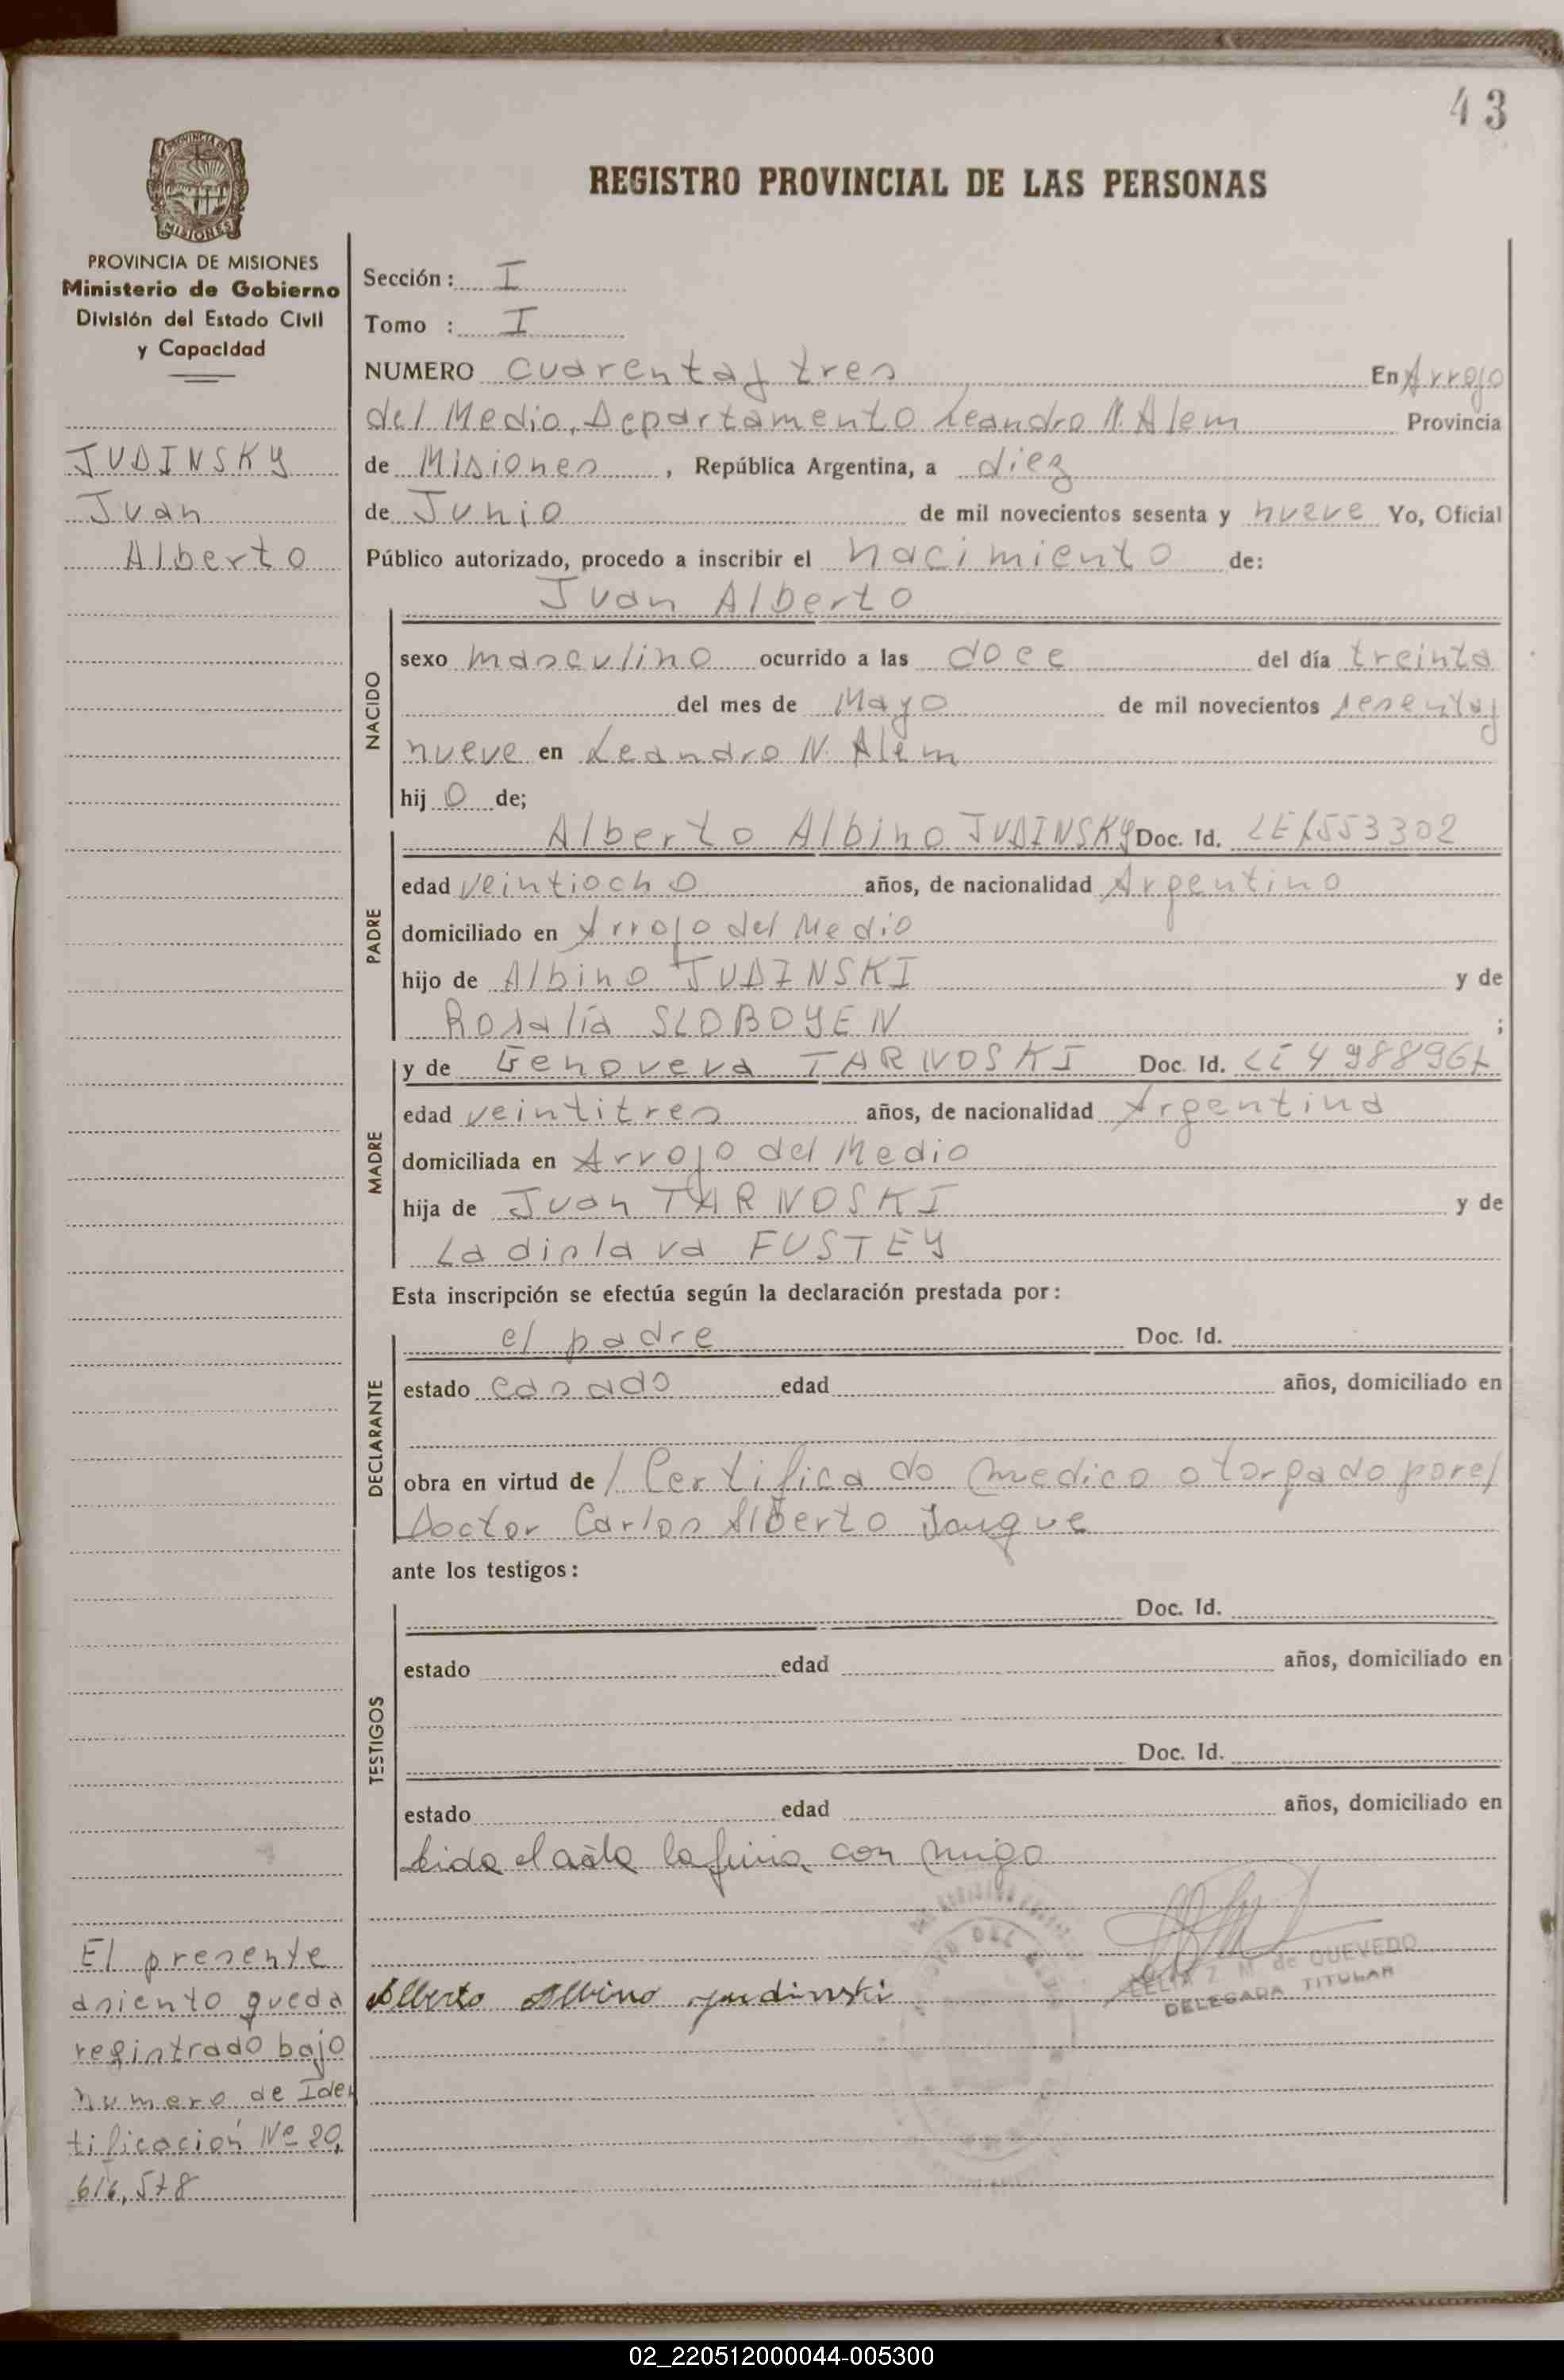 43
REGISTRO PROVINCIAL DE LAS PERSONAS
MISIONES
PROVINCIA DE MISIONES
Ministerio de Gobierno
División del Estado Civil
y Capacidad
JUDINSKY
Juan
Alberto
Sección: I
Tomo : I
NUMERO cuarenta y tres En Arroyo
del Medio, Departamento Leandro N. Alem Provincia
de Misiones, República Argentina, a diez
de Junio de mil novecientos sesenta y nueve Yo, Oficial
Público autorizado, procedo a inscribir el nacimiento de:
Juan Alberto
NACIDO
sexo masculino ocurrido a las doce del día treinta
del mes de Mayo de mil novecientos sesenta y
nueve en Leandro N. Alem
hij o de;
PADRE
Alberto Albino JUDINSKY Doc. Id. LE 7553302
edad veintiocho años, de nacionalidad Argentino
domiciliado en Arroyo del Medio
hijo de Albino JUDINSKI y de
Rosalía SLOBOYEN ;
MADRE
y de Genoveva TARNOSKI Doc. Id. LC 4988967
edad veintitres años, de nacionalidad Argentina
domiciliada en Arroyo del Medio
hija de Juan TARNOSKI y de
Ladislava FUSTEY
Esta inscripción se efectúa según la declaración prestada por:
DECLARANTE
el padre Doc. Id.
estado casado edad años, domiciliado en
obra en virtud de / Certificado medico otorgado por el
Doctor Carlos Alberto Jauque
ante los testigos:
TESTIGOS
Doc. Id.
estado edad años, domiciliado en
Doc. Id.
estado edad años, domiciliado en
Leida el acta la firma con migo
Alberto Albino Judinski
Z. M. de QUEVEDO
DELEGADA TITULAR
El presente
asiento queda
registrado bajo
numero de Iden
tificación Nº 20,
616,578
02_220512000044-005300